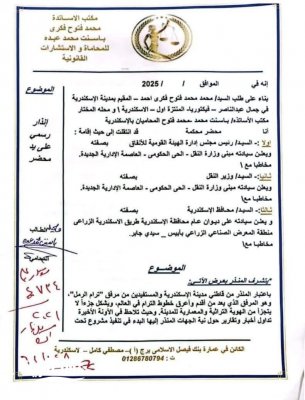 مكتب الأساتذة
محمد فتوح فكرى
باسنت محمد عبده
للمحاماة و الاستشارات
القانونية
إنه في الموافق / / 2025
الموضوع
إنذار
رسمى
على يد
محضر
بناء على طلب السيد/ محمد محمد فتوح فكرى احمد – المقيم بمدينة الإسكندرية
في جمال عبدالناصر – فيكتوريا- المنتزة أول – الاسكندرية و محله المختار
مكتب الأساتذة/ باسنت محمد -محمد فتوح المحاميان بالإسكندرية
أنا محضر محكمة قد انتقلت إلى حيث إقامة :
أولا :- السيد/ رئيس مجلس إدارة الهيئة القومية للأنفاق بصفته
ويعلن سيادته مبنى وزارة النقل - الحى الحكومى - العاصمة الإدارية الجديدة.
مخاطبا مع \
ثانيا:- السيد/ وزير النقل بصفته
ويعلن سيادته مبنى وزارة النقل - الحى الحكومى - العاصمة الإدارية الجديدة.
مخاطبا مع \
ثالثا:- السيد/ محافظ الإسكندرية بصفته
و يعلن سيادته على ديوان عام محافظة الإسكندرية طريق الاسكندرية الزراعى
منطقة المعرض الصناعى الزراعى بأبيس – سيدى جابر.
مخاطبا مع \
الموضوع
يتشرف المنذر بعرض الآتي:
باعتبار المنذر من قاطني مدينة الإسكندرية والمستفيدين من مرفق "ترام الرمل"،
وهو المرفق الذي يعد من أقدم وأعرق خطوط الترام في العالم، ويشكل جزءاً لا
يتجزأ من الهوية التراثية والمعمارية للمدينة. وحيث تلاحظ في الآونة الأخيرة
تداول أخبار وتقارير حول نية الجهات المنذر إليها البدء في تنفيذ مشروع تحت
الكائن في عمارة بنك فيصل الاسلامى برج ( أ ) – مصطفى كامل – لاسكندرية
ت : 01286780794
وكيلة الطالب
المحامية